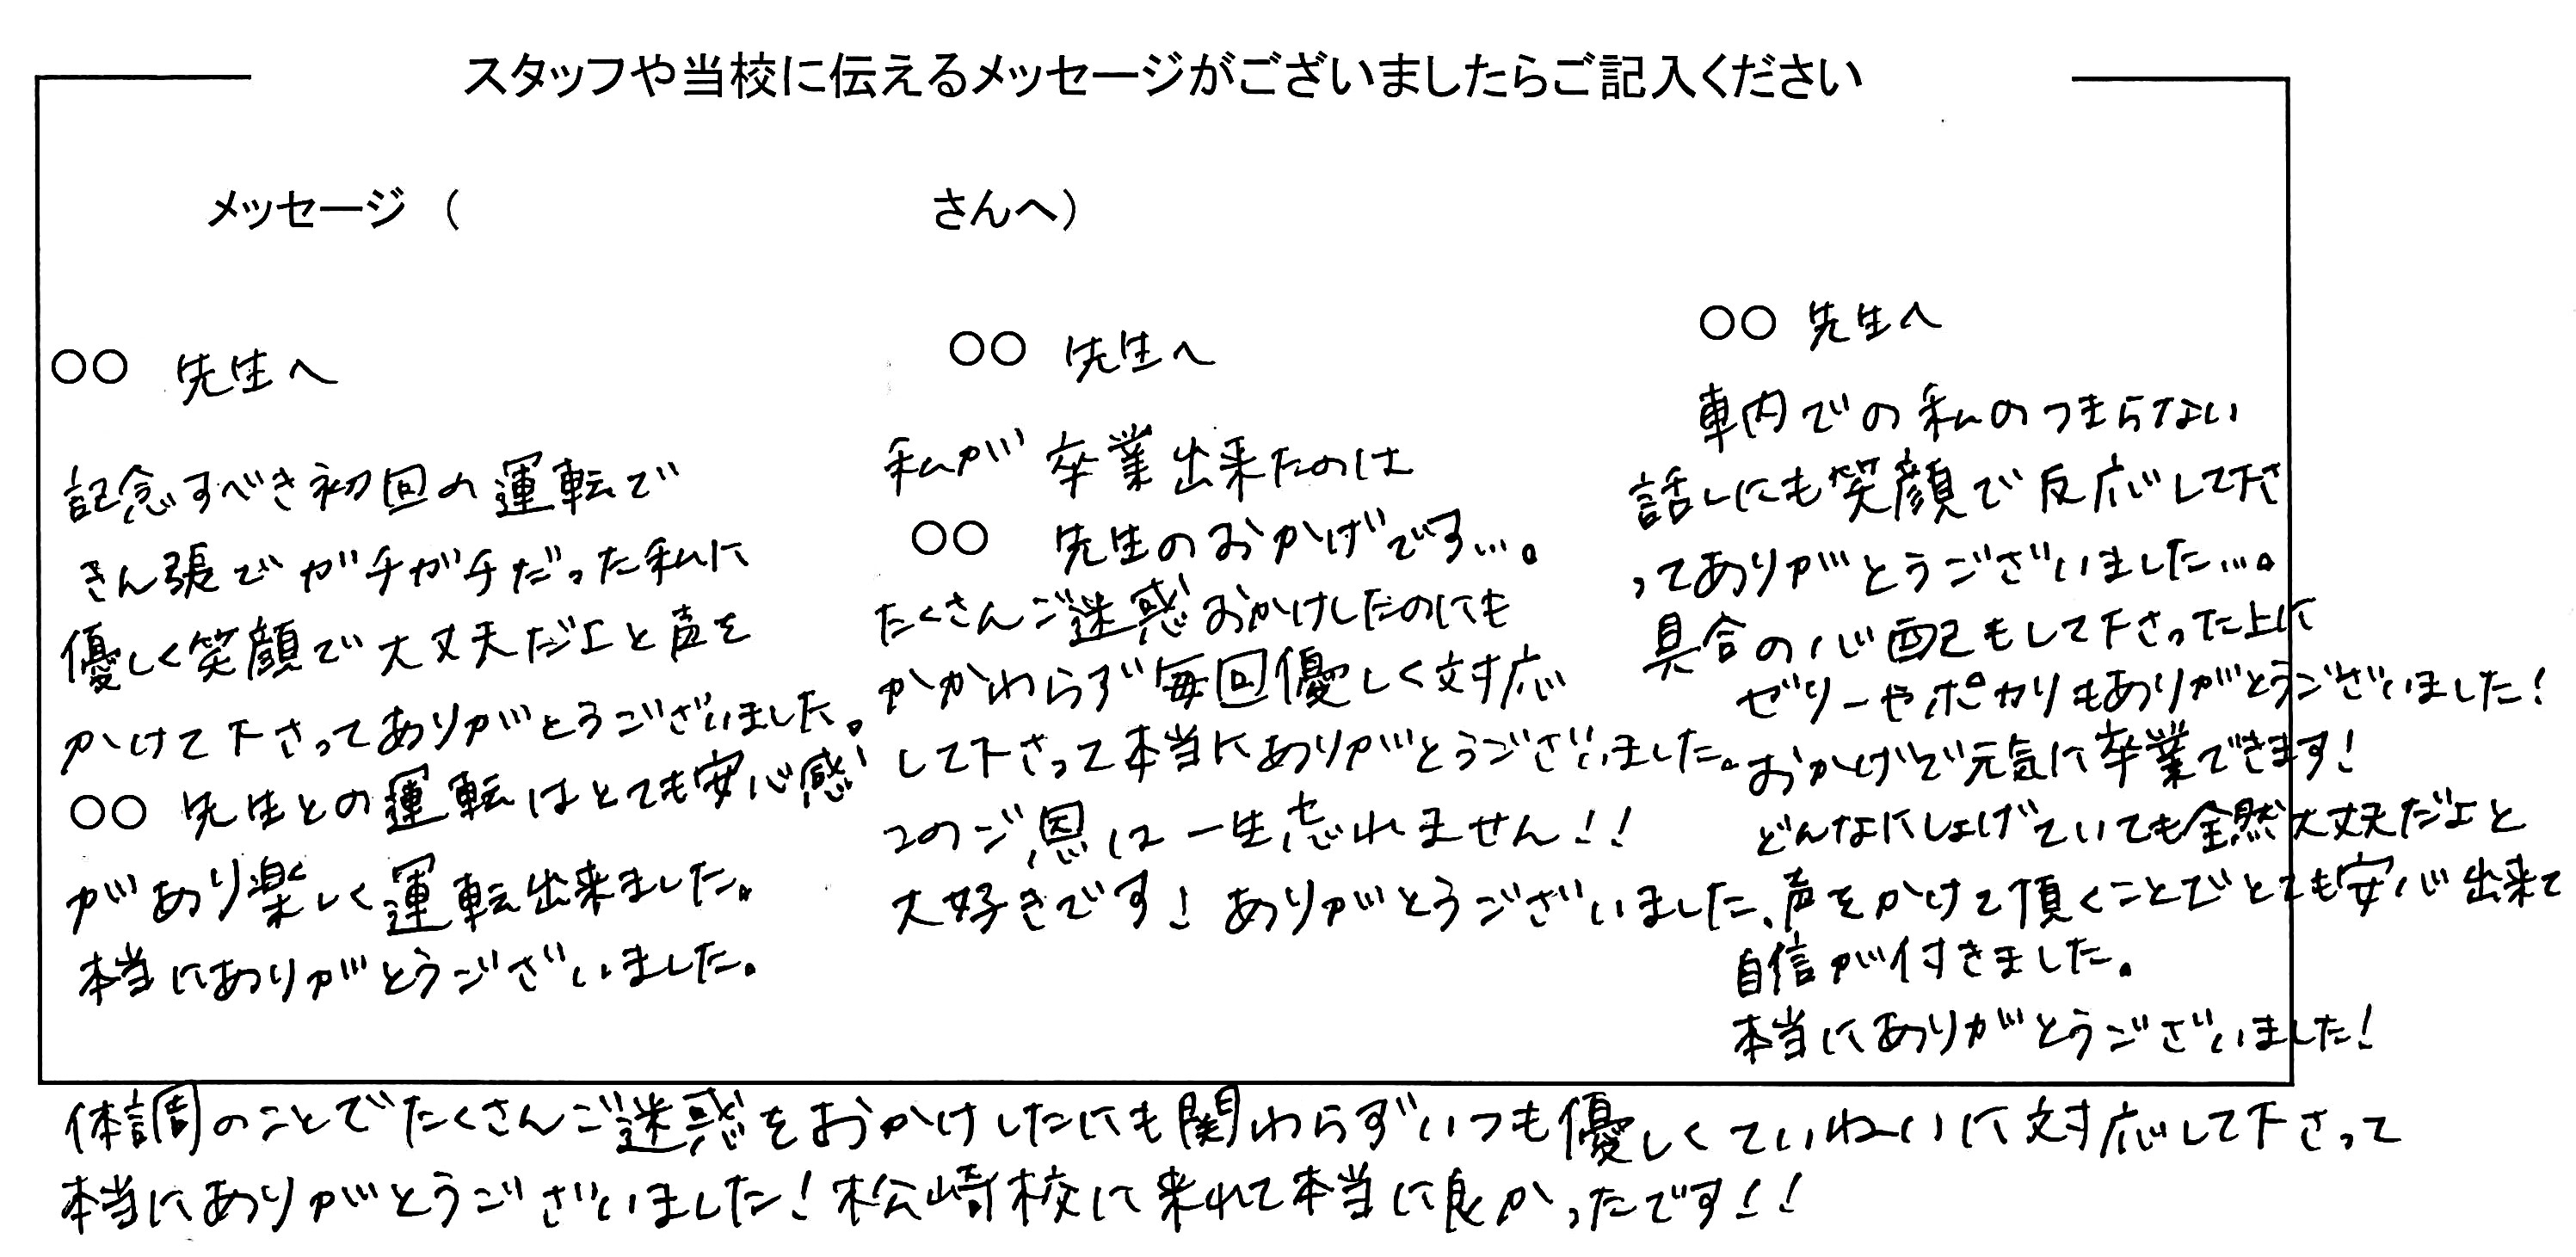 スタッフや当校に伝えるメッセージがございましたらご記入ください
メッセージ（　　　　　　　　　　さんへ）
○○ 先生へ
記念すべき初回の運転で
きん張でガチガチだった私に
優しく笑顔で大丈夫だよと声を
かけて下さってありがとうございました。
○○ 先生との運転はとても安心感
があり楽しく運転出来ました。
本当にありがとうございました。
○○ 先生へ
私が卒業出来たのは
○○ 先生のおかげです…。
たくさんご迷惑おかけしたのにも
かかわらず毎回優しく対応
して下さって本当にありがとうございました。
このご恩は一生忘れません!!
大好きです! ありがとうございました、
○○ 先生へ
車内での私のつまらない
話しにも笑顔で反応して下さ
ってありがとうございました…。
具合の心配もして下さった上に
ゼリーやポカリもありがとうございました!
おかげで元気に卒業できます!
どんなにしょげていても全然大丈夫だよと
声をかけて頂くことでとても安心出来て
自信が付きました。
本当にありがとうございました!
体調のことでたくさんご迷惑をおかけしたにも関わらずいつも優しくていねいに対応して下さって
本当にありがとうございました! 松崎校に来れて本当に良かったです!!